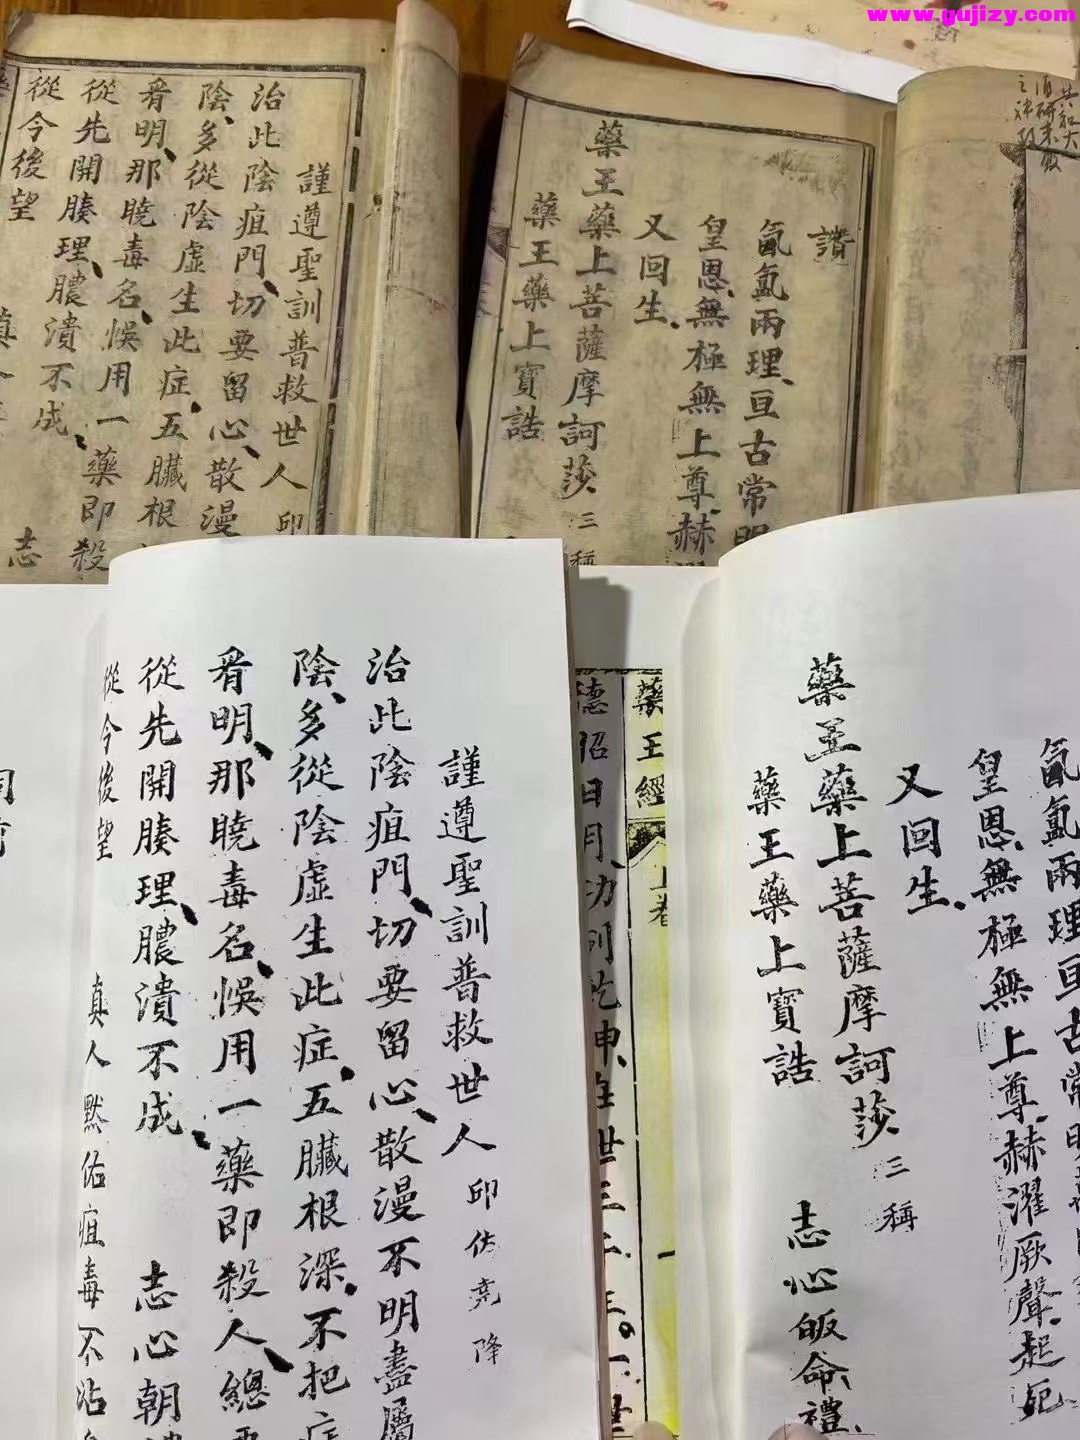 www.gujizy.com
讚
氤氳兩理、亘古常明
皇恩、無極無上尊、赫濯
又回生、
藥王藥上菩薩摩訶莎 三稱
藥王藥上寶誥
謹遵聖訓普救世人 邱
治此陰疽門、切要留心、散漫
陰、多從陰虛生此症、五臟根
看明、那曉毒名、悞用一藥即殺
從先開腠理、膿潰不成、 志
從今後望
氤氳兩理亘古常明
皇恩、無極無上尊、赫濯厥聲、起死
又回生、
藥王藥上菩薩摩訶莎 三稱
藥王藥上寶誥 志心皈命、禮、
藥王經 上卷 一
德昭日月、功
謹遵聖訓普救世人 邱佐堯降
治此陰疽門、切要留心、散漫不明盡屬
陰、多從陰虛生此症、五臟根深、不把症
看明、那曉毒名、悞用一藥即殺人、總要
從先開腠理、膿潰不成、 志心朝禮
從今後望 真人默佑疽毒不沾身